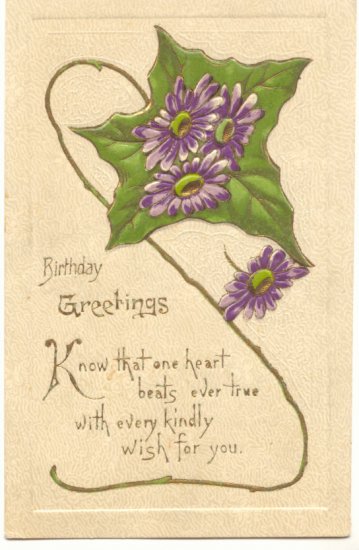 Birthday
Greetings
Know that one heart
beats ever true
with every kindly
wish for you.